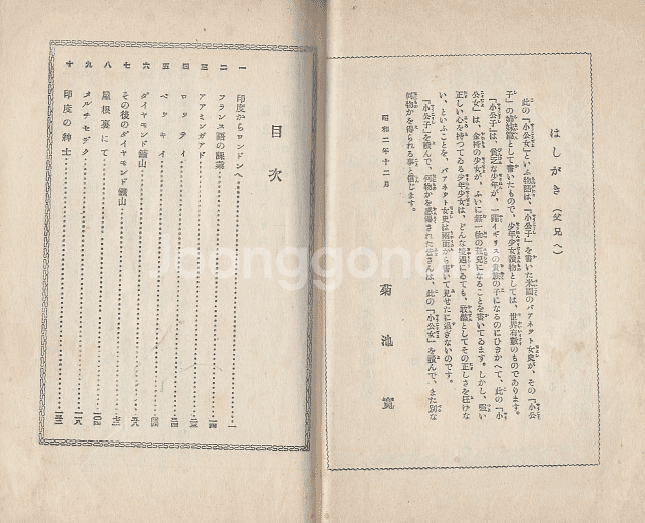 はしがき（父兄へ）
此の『小公女』といふ物語は、『小公子』を書いた米國のバアネット女史が、その『小公
子』の姉妹篇として書いたもので、少年少女讀物としては、世界有數のものであります。
『小公子』は、貧乏な少年が、一躍イギリスの貴族の子になるのにひきかへて、此の『小
公女』は、金持の少女が、ふいに無一物の孤兒になることを書いてゐます。しかし、强い
正しい心を持つてゐる少年少女は、どんな境遇にゐても、敢然としてその正しさを枉げな
い、といふことを、バアネット女史は兩面から書いて見せたに過ぎないのです。
『小公子』を讀んで、何物かを感得された皆さんは、此の『小公女』を讀んで、また別な
何物かを得られる事と信じます。
昭和二年十二月
菊池寬
目次
一 印度からロンドンへ 一
二 フランス語の課業
三 アアミンガアド
四 ロッティ
五 ベッキイ
六 ダイヤモンド鑛山
七 その後のダイヤモンド鑛山
八 屋根裏にて 一〇四
九 メルチセデク
十 印度の紳士
Joonggonara